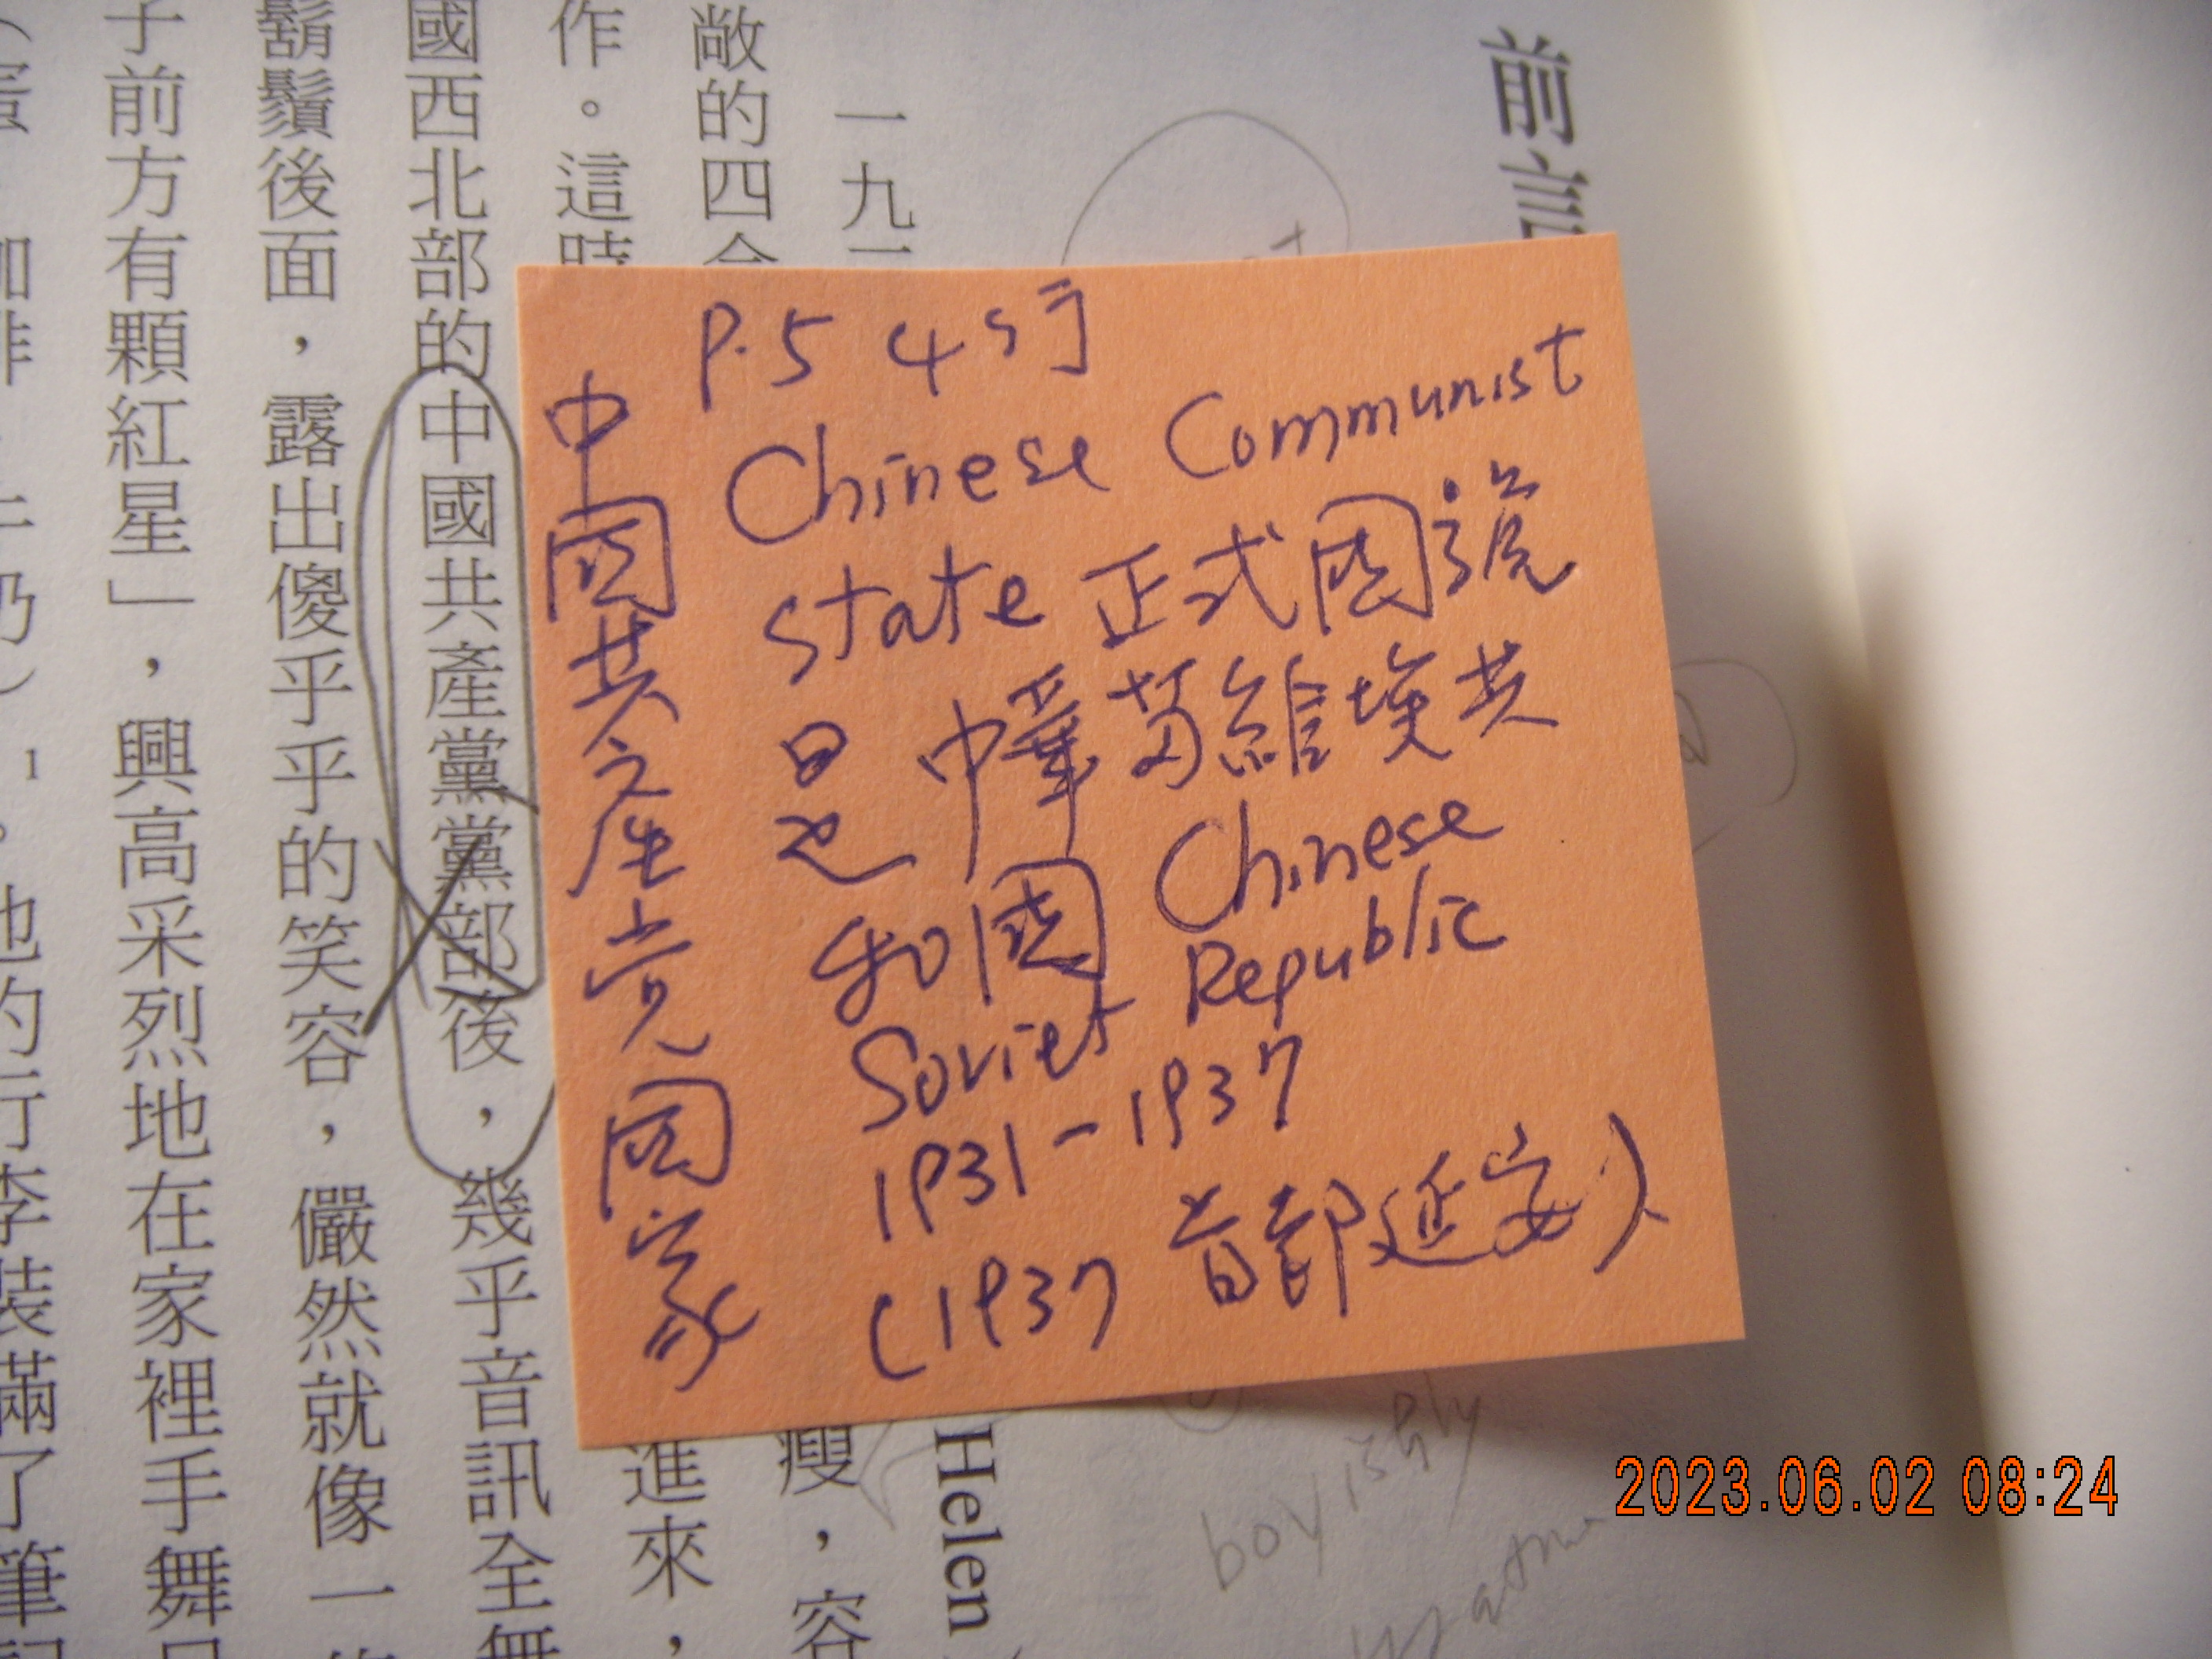 前言
一九
敞的四合
作。這時
國西北部的中國共產黨黨部後，幾乎音訊全無
鬍鬚後面，露出傻乎乎的笑容，儼然就像一
子前方有顆紅星」，興高采烈地在家裡手舞
咖啡、牛奶）1。他的行李裝滿了筆記
Helen
瘦，容
進來，
P.5 4行
Chinese Communist
State 正式國號
是中華蘇維埃共
和國 Chinese
Soviet Republic
1931-1937
(1937 首都延安)
中國共产党國家
boyishly
2023.06.02 08:24